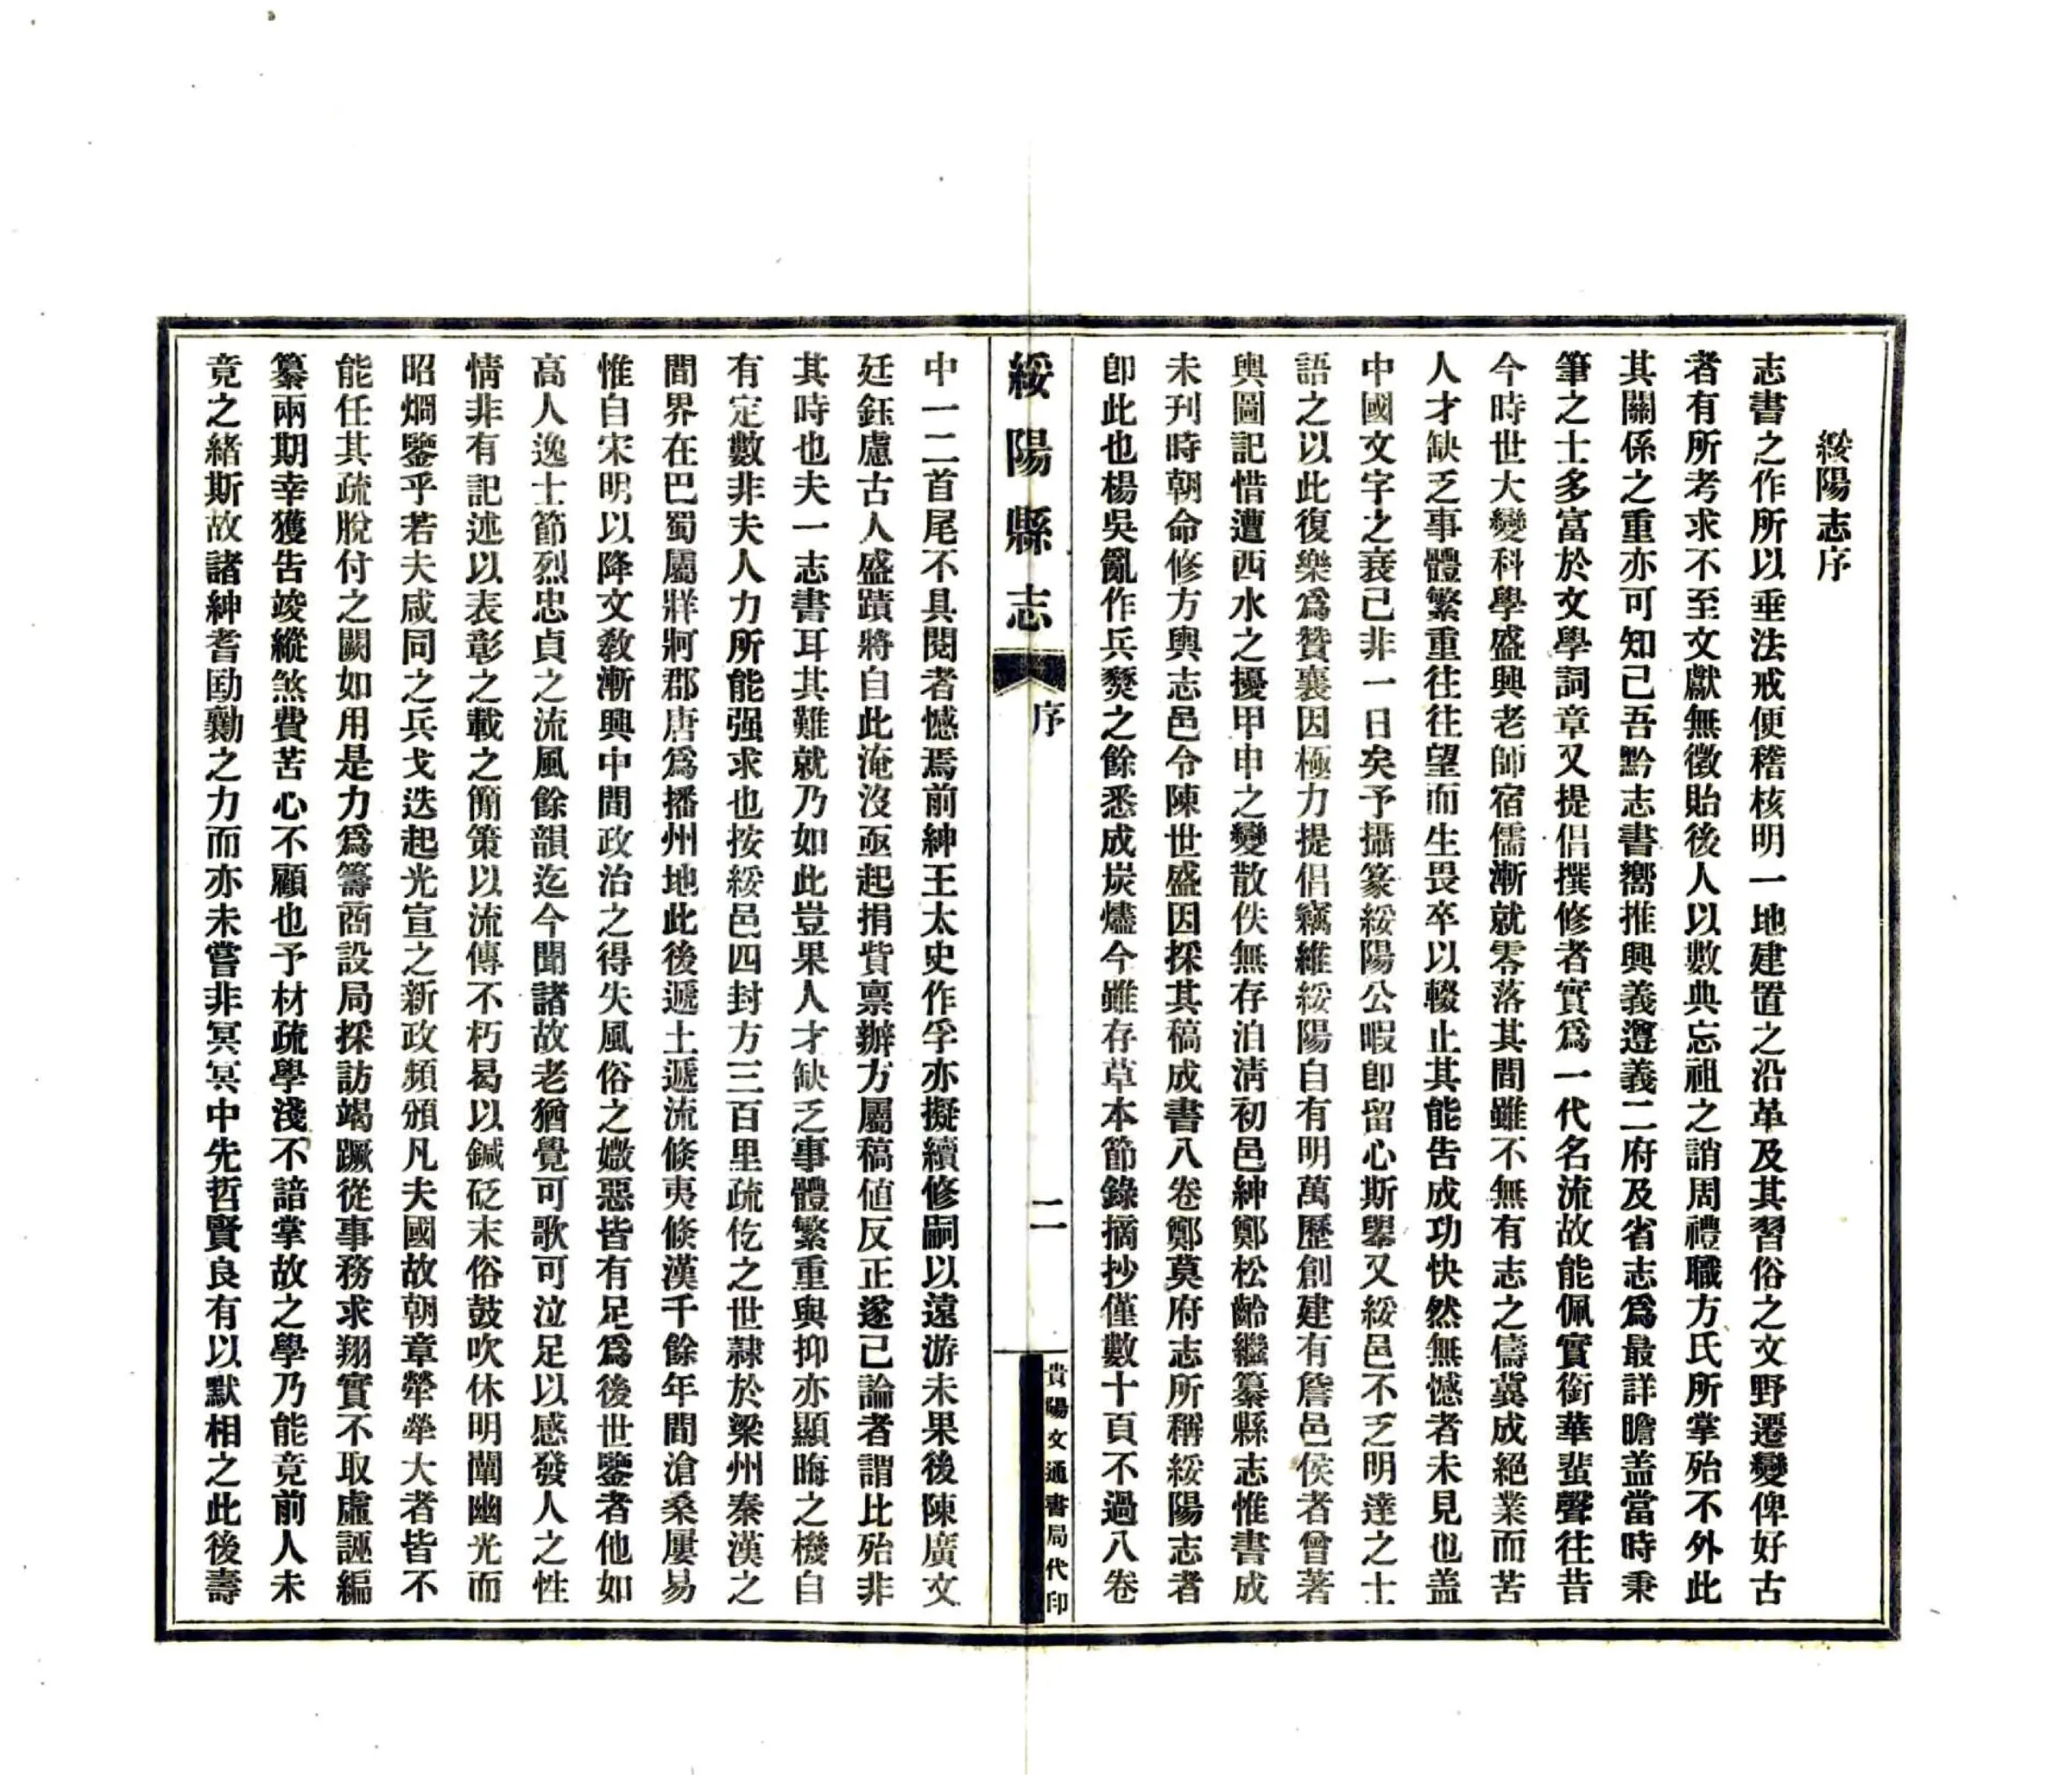 綏陽志序
志書之作所以垂法戒便稽核明一地建置之沿革及其習俗之文野遷變俾好古
者有所考求不至文獻無徵貽後人以數典忘祖之誚周禮職方氏所掌殆不外此
其關係之重亦可知已吾黔志書嚮推興義遵義二府及省志爲最詳瞻盖當時秉
筆之士多富於文學詞章又提倡撰修者實爲一代名流故能佩實銜華蜚聲往昔
今時世大變科學盛興老師宿儒漸就零落其間雖不無有志之儔冀成絕業而苦
人才缺乏事體繁重往往望而生畏卒以輟止其能告成功快然無憾者未見也盖
中國文字之衰已非一日矣予攝篆綏陽公暇卽留心斯舉又綏邑不乏明達之士
語之以此復樂爲贊襄因極力提倡竊維綏陽自有明萬歷創建有詹邑侯者曾著
輿圖記惜遭西水之擾甲申之變散佚無存洎淸初邑紳鄭松齡繼纂縣志惟書成
未刊時朝命修方輿志邑令陳世盛因採其稿成書八卷鄭莫府志所稱綏陽志者
卽此也楊吳亂作兵燹之餘悉成炭燼今雖存草本節錄摘抄僅數十頁不過八卷
綏陽縣志
序
二
貴陽文通書局代印
中一二首尾不具閱者憾焉前紳王太史作孚亦擬續修嗣以遠游未果後陳廣文
廷鈺慮古人盛蹟將自此淹沒亟起捐貲禀辦方屬稿値反正遂已論者謂比殆非
其時也夫一志書耳其難就乃如此豈果人才缺乏事體繁重與抑亦顯晦之機自
有定數非夫人力所能强求也按綏邑四封方三百里疏仡之世隷於梁州秦漢之
間界在巴蜀屬牂牁郡唐爲播州地此後遞土遞流倐夷倐漢千餘年間滄桑屢易
惟自宋明以降文敎漸興中間政治之得失風俗之媺惡皆有足爲後世鑒者他如
高人逸士節烈忠貞之流風餘韻迄今聞諸故老猶覺可歌可泣足以感發人之性
情非有記述以表彰之載之簡策以流傳不朽曷以鍼砭末俗鼓吹休明闡幽光而
昭烱鑒乎若夫咸同之兵戈迭起光宣之新政頻頒凡夫國故朝章犖犖大者皆不
能任其疏脫付之闕如用是力爲籌商設局採訪竭蹶從事務求翔實不取虛誣編
纂兩期幸獲告竣縱煞費苦心不顧也予材疏學淺不諳掌故之學乃能竟前人未
竟之緖斯故諸紳耆劻勷之力而亦未嘗非冥冥中先哲賢良有以默相之此後壽